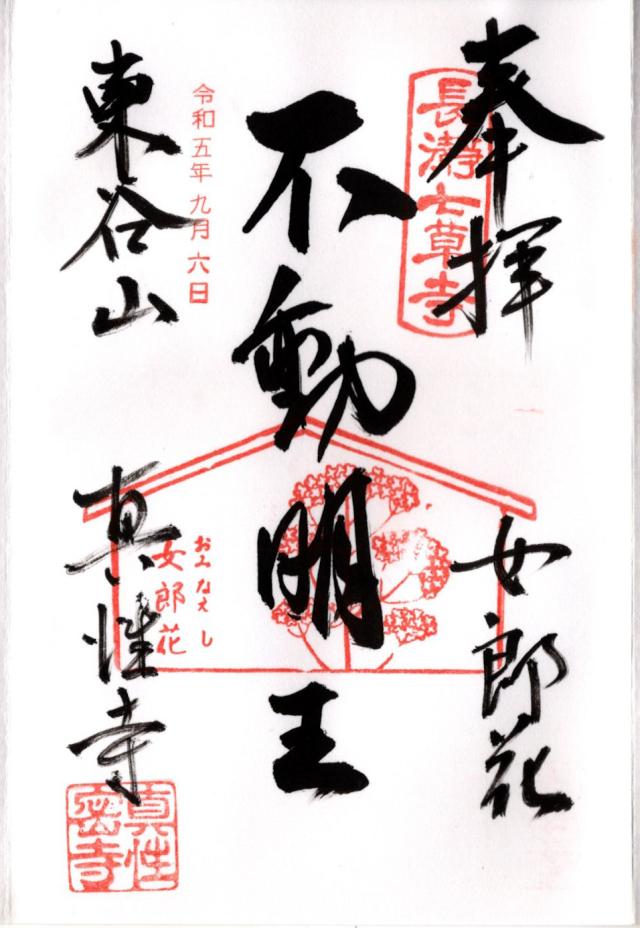 奉拝
長瀞七草寺
女郎花
不動明王
おみなえし
女郎花
令和五年九月六日
東谷山
真性寺
真性密寺